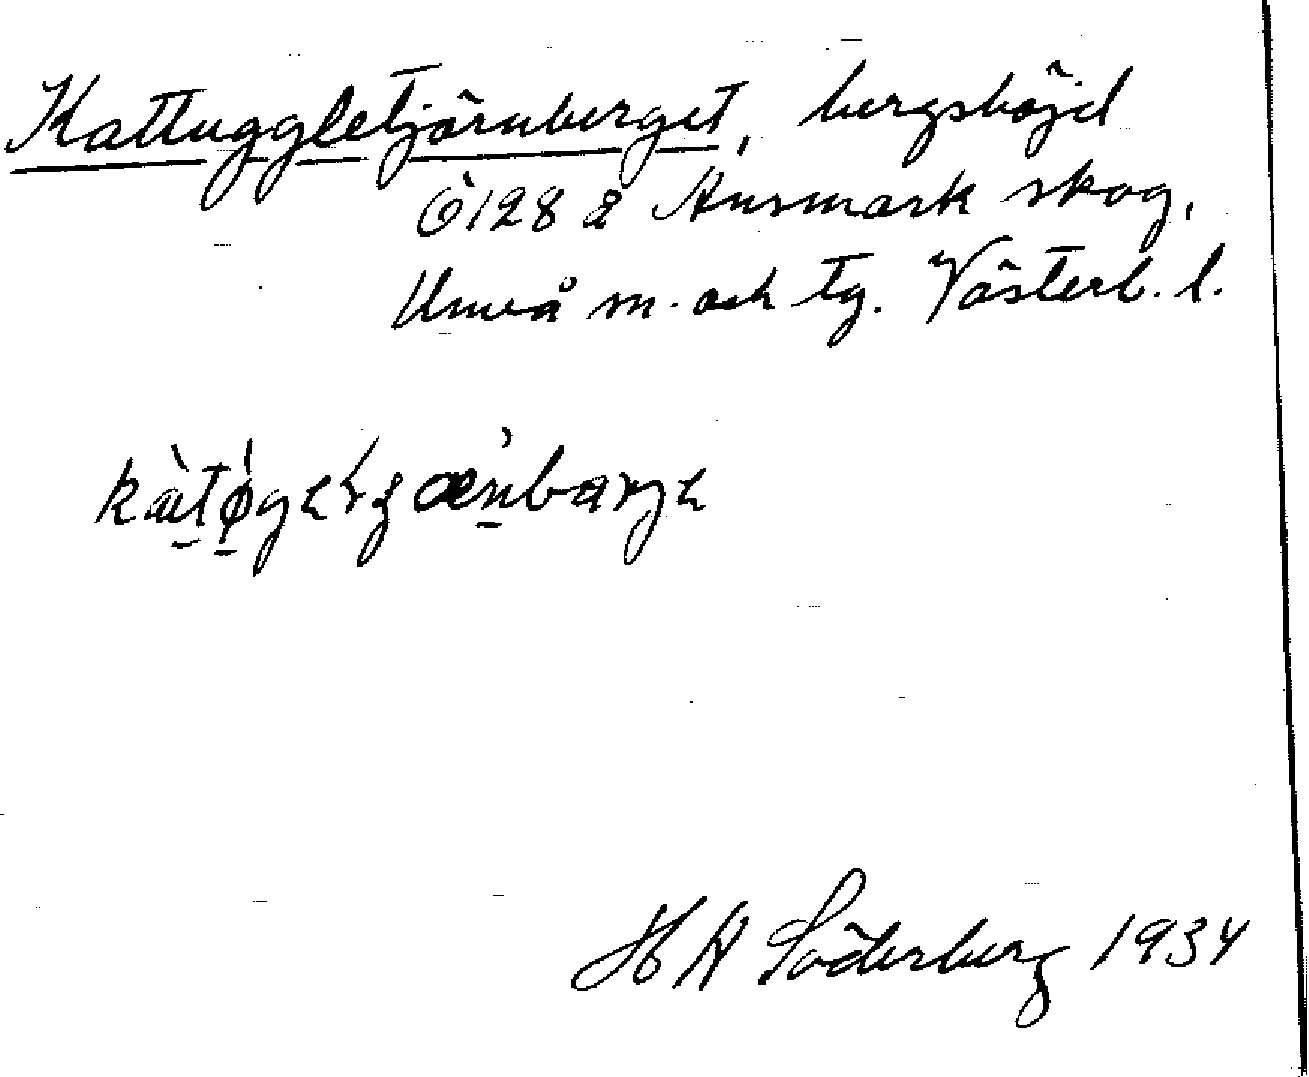 Kattuggletjärnberget, bergshöjd
Ö128 å Ansmark skog,
Umeå m. och tg. Västerb. l.
H A Söderberg 1934